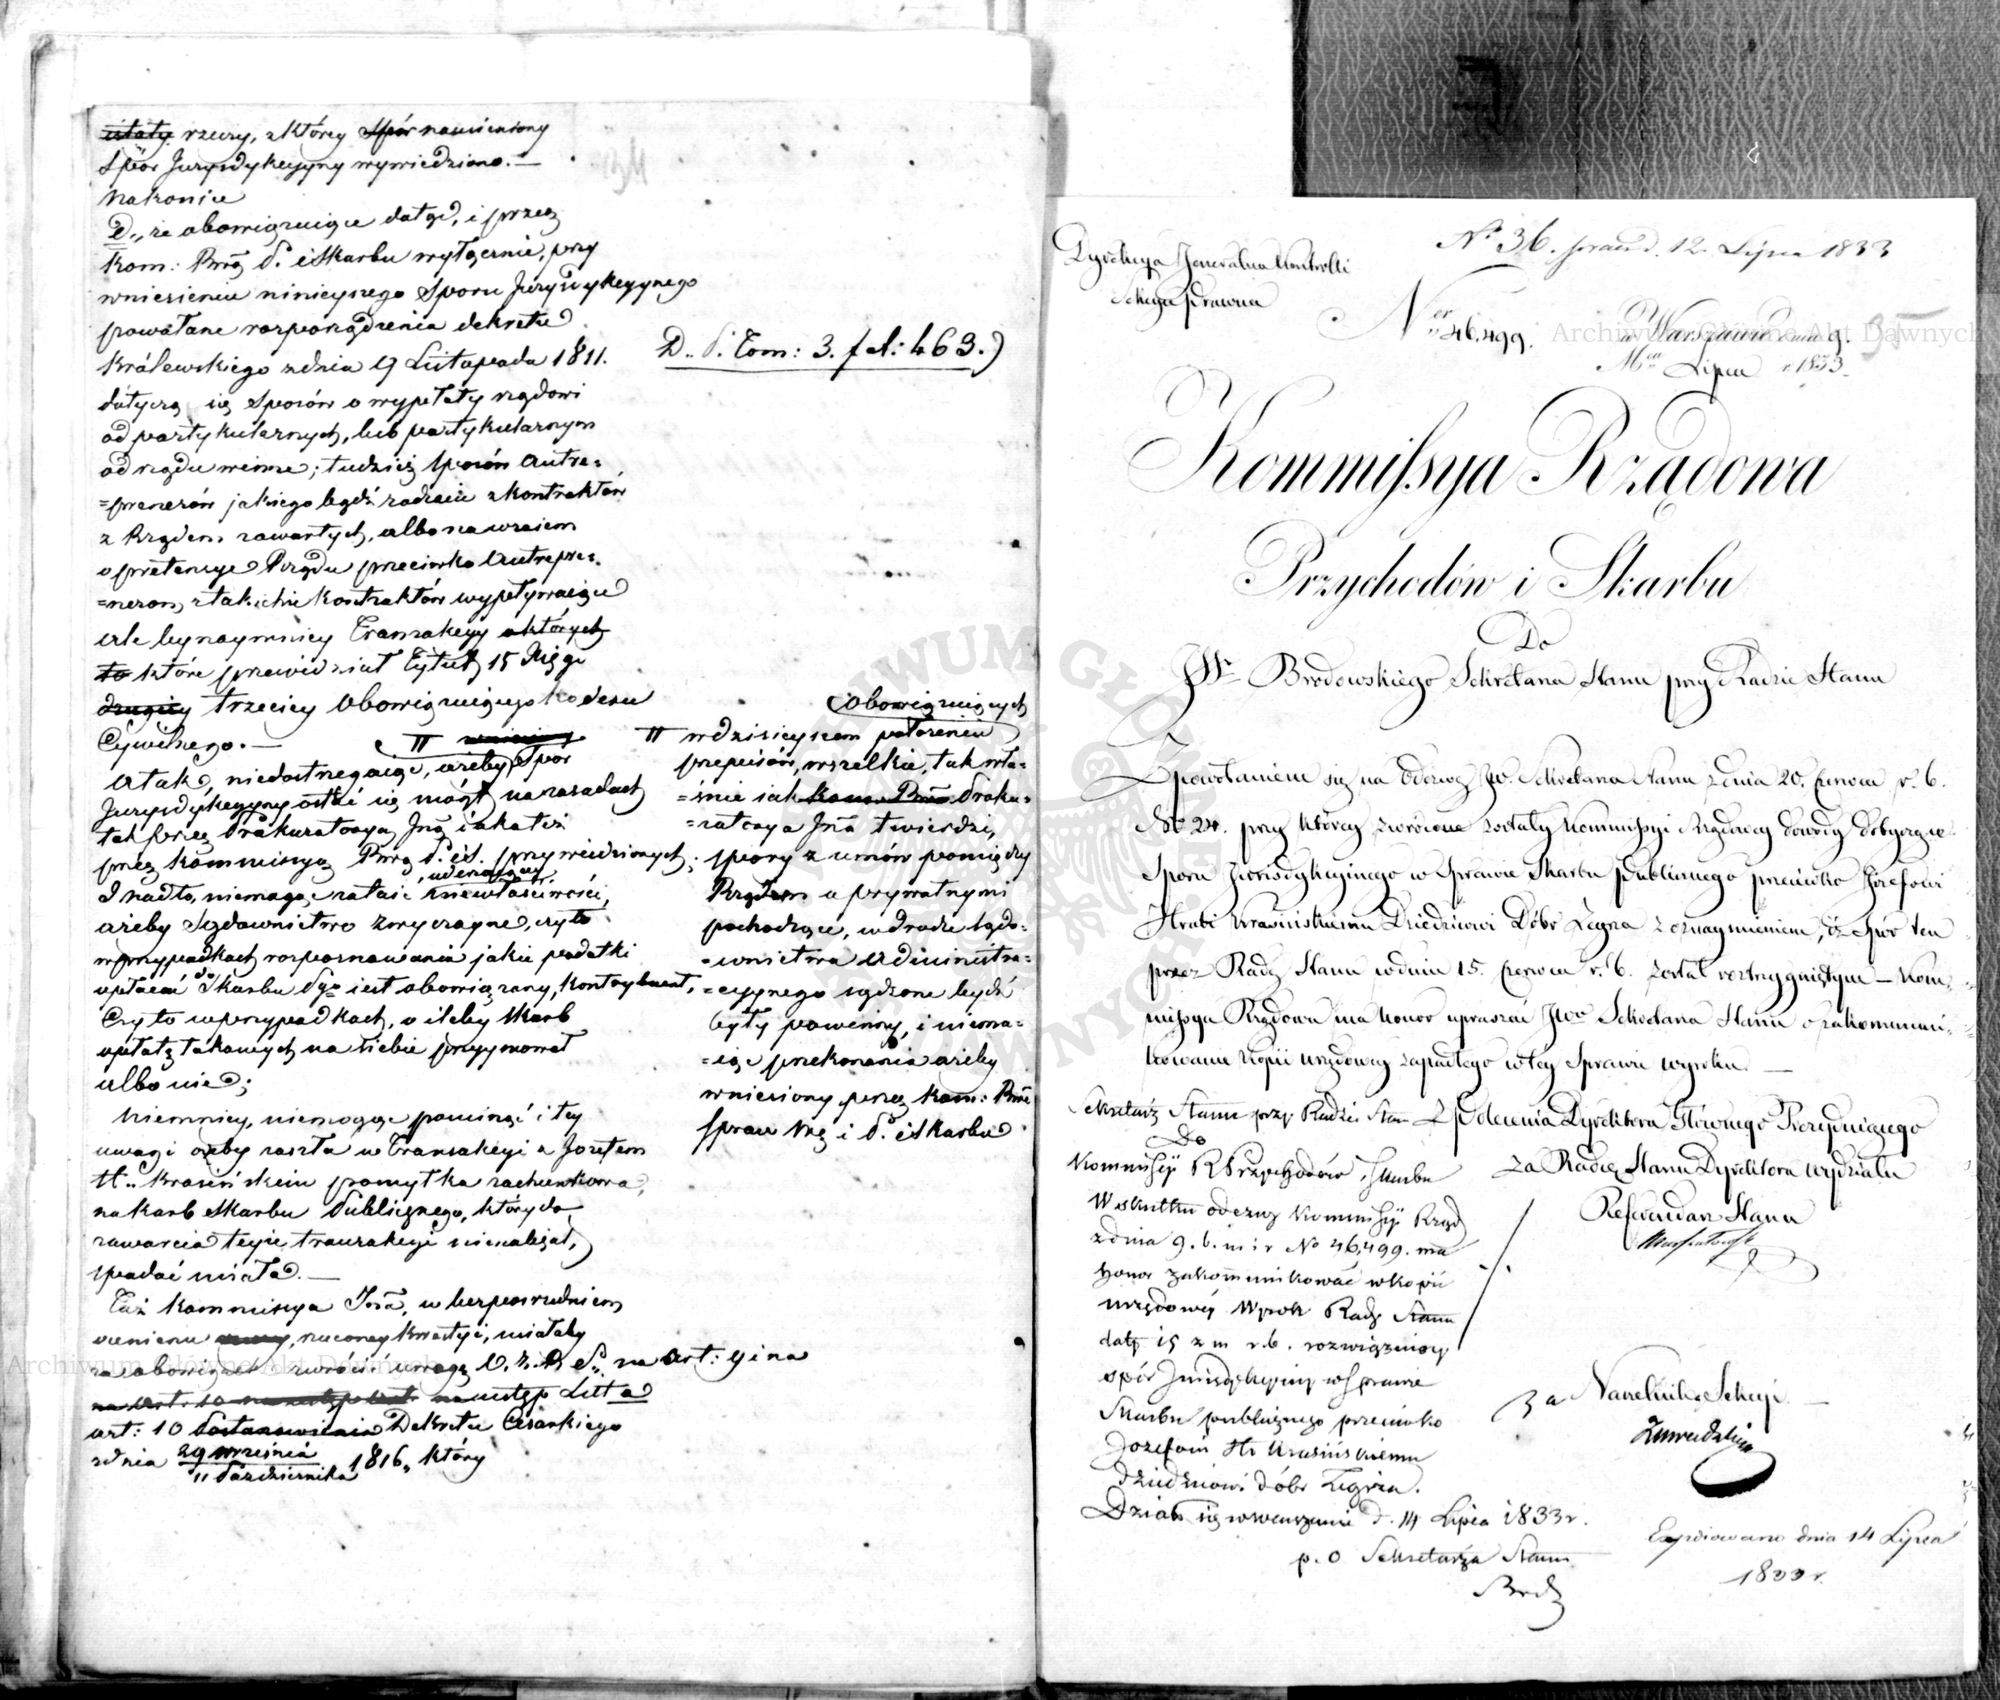 rzeczy, z której spór namieniony
Spór Jurysdykcyjny wywiedziono. —
34
Nakoniec
D., że obowiązujące dotąd, i przez
Kom: Rzą P. i Skarbu wyłącznie, przy
wniesieniu ninieyszego Sporu Jurysdykcyynego
powołane rozporządzenia dekretu
Królewskiego z dnia 19 Listopada 1811.
D. P. Tom: 3. fol: 463.)
dotyczą się Sporów o wypłaty rządowi
od partykularnych, lub partykularnym
od rządu winne; tudzież sporów Antre=
=prenerów jakiego bądź rodzaiu z kontraktów
z Rządem zawartych, albo nawzaiem
o pretensye Rządu przeciwko Antrepre=
=nerom z takichże kontraktów wypływaiące
ale bynaymniey Tranzakcyy o których
to które przewidział Tytuł 15 Xięgi
drugiey trzeciey obowiązuiącego Kodexu
Cywilnego. —
A tak, niedostrzegaiąc, ażeby Spór
Jurysdykcyyny ostać się mógł na zasadach
tak przez Prokuratoryą Jną iako też
przez Kommissyą Rzą P. i S. przywiedzionych;
I nadto, niemogąc znaleść niewłaściwości,
uderzaiącey
ażeby Sądownictwo zwyczayne, czyto
w przypadkach rozpoznawania jakie podatki
opłacać do Skarbu Pgo iest obowiązany, kontrybuent,
Czy to w przypadkach, o ileby Skarb
opłatę takowych na siebie przyymował
albo nie;
obowiązuiących
w dzisieyszem położeniu
przepisów, wszelkie, tak wła=
=śnie iak Kom: Rzą Proku=
=ratorya Jna twierdzi,
spory z umów pomiędzy
Rządem a prywatnymi
pochodzące, w drodze sądo=
=wnictwa administra=
=cyynego sądzone bydź
były powinny, i niema=
=iąc przekonania ażeby
wniesiony przez Kom: Rzą
Spraw Wę i P. i Skarbu
Niemniey, niemogąc pominąć i tey
uwagi ażeby zaszła w Tranzakcyi z Józefem
H. Krasińskim pomyłka rachunkowa,
na karb Skarbu Publicznego, który do
zawarcia teyże tranzakcyi nienależał,
spadać miała. —
Taż Kommissya Jna, w bezpośredniem
ocenieniu rzeczoney kwestyi, miałaby
za obowiązek zwrócić uwagę na art: 9 i na
na ustęp Litt a
art: 10 Postanowienia Dekretu Cesarskiego
z dnia 29 września
11 Października 1816, który
Dyrekcya Jeneralna Kontrolli
Sekcya prawna
N° 36. prae d. 12. Lipca 1833
Ner 46,499.
w Warszawie dnia 9.
Mca Lipca r. 1833.
35
Kommissya Rządowa
Przychodów i Skarbu
Do
JW Brodowskiego Sekretarza Stanu przy Radzie Stanu
Z powołaniem się na Odezwę JW. Sekretarza Stanu z dnia 20. Czerwca r. b.
No 24. przy którey zwrócone zostały Kommissyi Rządowey dowody dotyczące
Sporu Jurisdykcyinego w Sprawie Skarbu publicznego przeciwko Józefowi
Hrabi Krasińskiemu Dziedzicowi Dóbr Zegrza z oznaymieniem, iż spór ten
przez Radę Stanu w dniu 15. Czerwca r. b. został rozstrzygniętym — Kom=
missya Rządowa ma honor upraszać JWo Sekretarza Stanu o zakommuni=
kowanie Kopii urzędowey zapadłego w tey Sprawie wyroku. —
Z polecenia Dyrektora Głównego Prezyduiącego
za Radcę Stanu Dyrektora Wydziału
Referendarz Stanu
Za Naczelnika Sekcyi
Sekretarz Stanu przy Radzie Stan
Do
Kommissyi R Przychodów i Skarbu
W skutku odezwy Kommissyi Rząd
z dnia 9. b. m i r No 46,499. ma
honor zakommunikować w kopii
urzędowéy Wyrok Rady Stanu
daty 15 z m r. b. rozwiązuiący
spór Jurisdykcyiny w Sprawie
Skarbu publicznego przeciwko
Józefowi Hr Krasińskiemu
dziedzicowi dóbr Zegrza.
Działo się w Warszawie d. 14 Lipca 1833 r.
p. o Sekretarza Stanu
Brod
Expediowano dnia 14 Lipca
1833 r.
Archiwum Główne Akt Dawnych